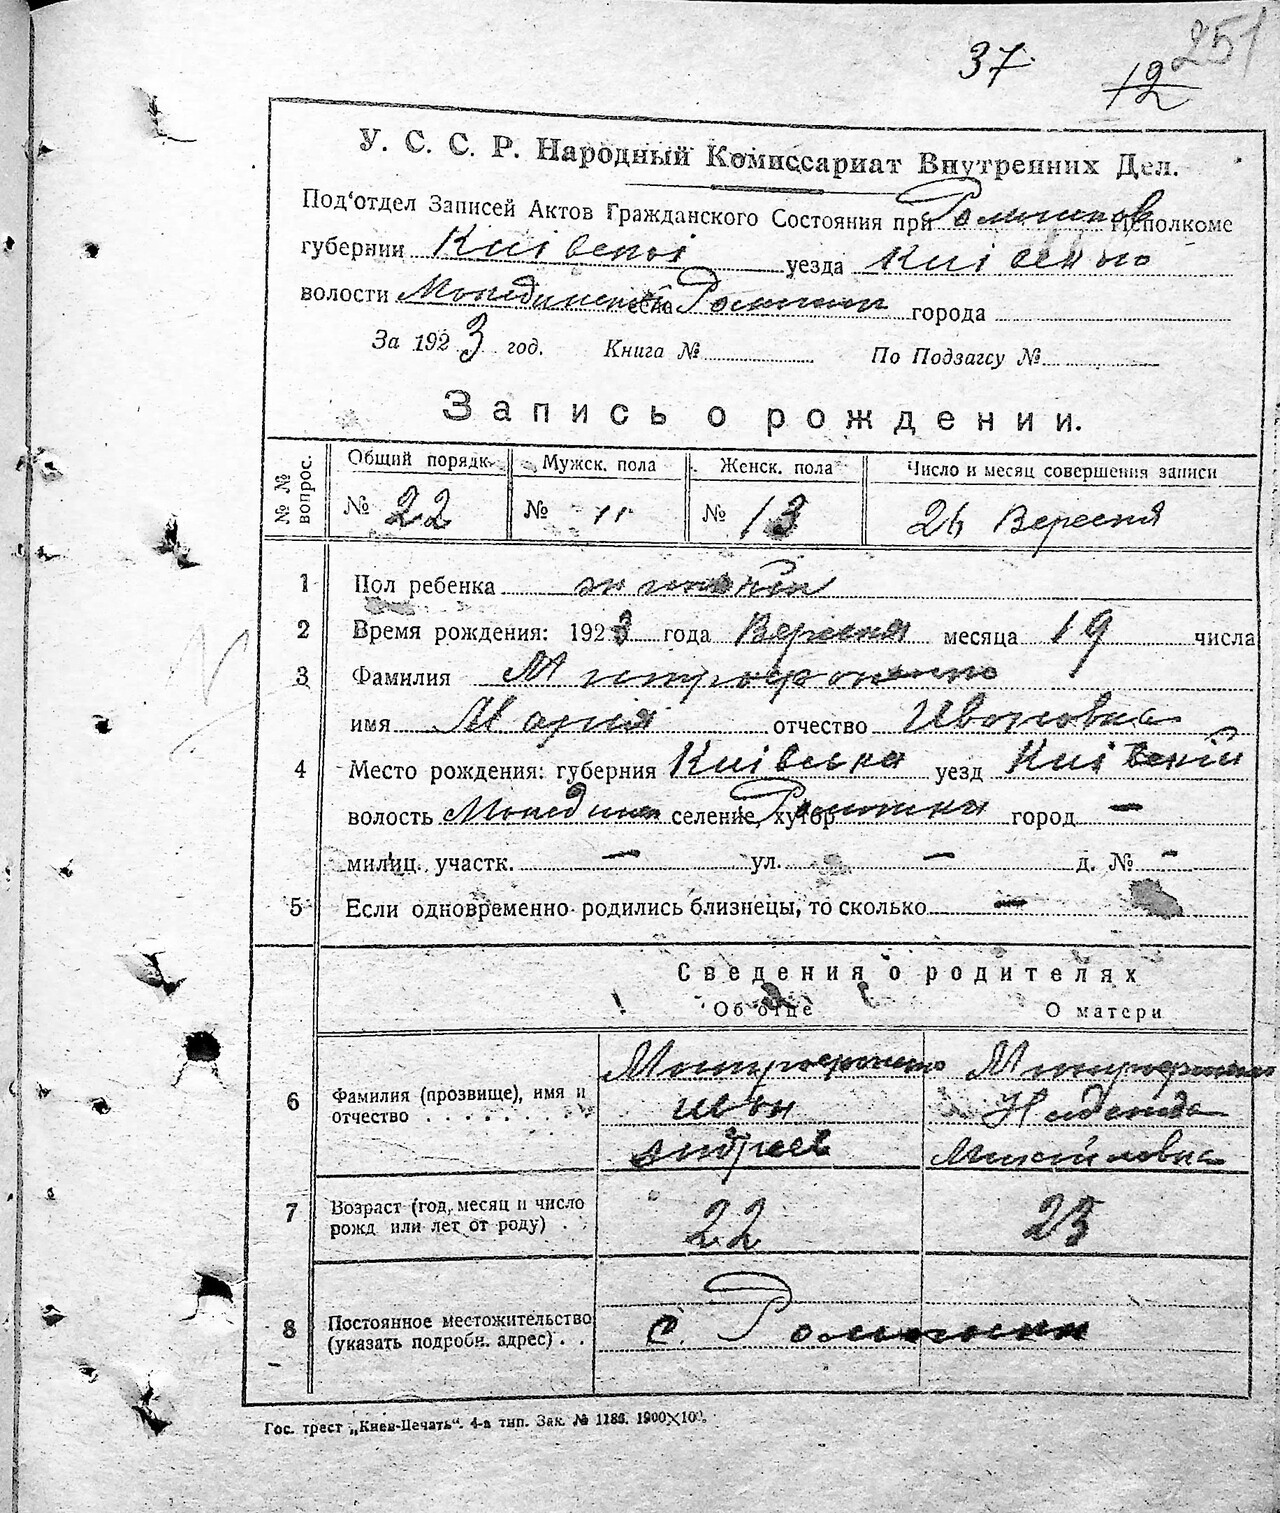 251
37.
12
У. С. С. Р. Народный Комиссариат Внутренних Дел.
Под'отдел Записей Актов Гражданского Состояния при Исполкоме
губернии Київської уезда Київського
волости села города
За 1923 год. Книга № По Подзагсу №
Запись о рождении.
№ № вопрос.
Общий порядк. Мужск. пола Женск. пола Число и месяц совершения записи
№ 22 № " № 13 26 Вересня
1 Пол ребенка
2 Время рождения: 1923 года Вересня месяца 19 числа
3 Фамилия Митрофоненко
имя Мария отчество Ивановна
4 Место рождения: губерния Київська уезд Київський
волость селение, хутор город —
милиц. участк. — ул. — д. № -
5 Если одновременно родились близнецы, то сколько —
Сведения о родителях
Об отце О матери
6 Фамилия (прозвище), имя и отчество
Митрофоненко Митрофоненко
Иван Надежда
Андреев Михайловна
7 Возраст (год, месяц и число рожд. или лет от роду)
22 23
8 Постоянное местожительство (указать подробн. адрес)
с.
Гос. трест „Киев-Печать“. 4-я тип. Зак. № 1186. 1900×100.